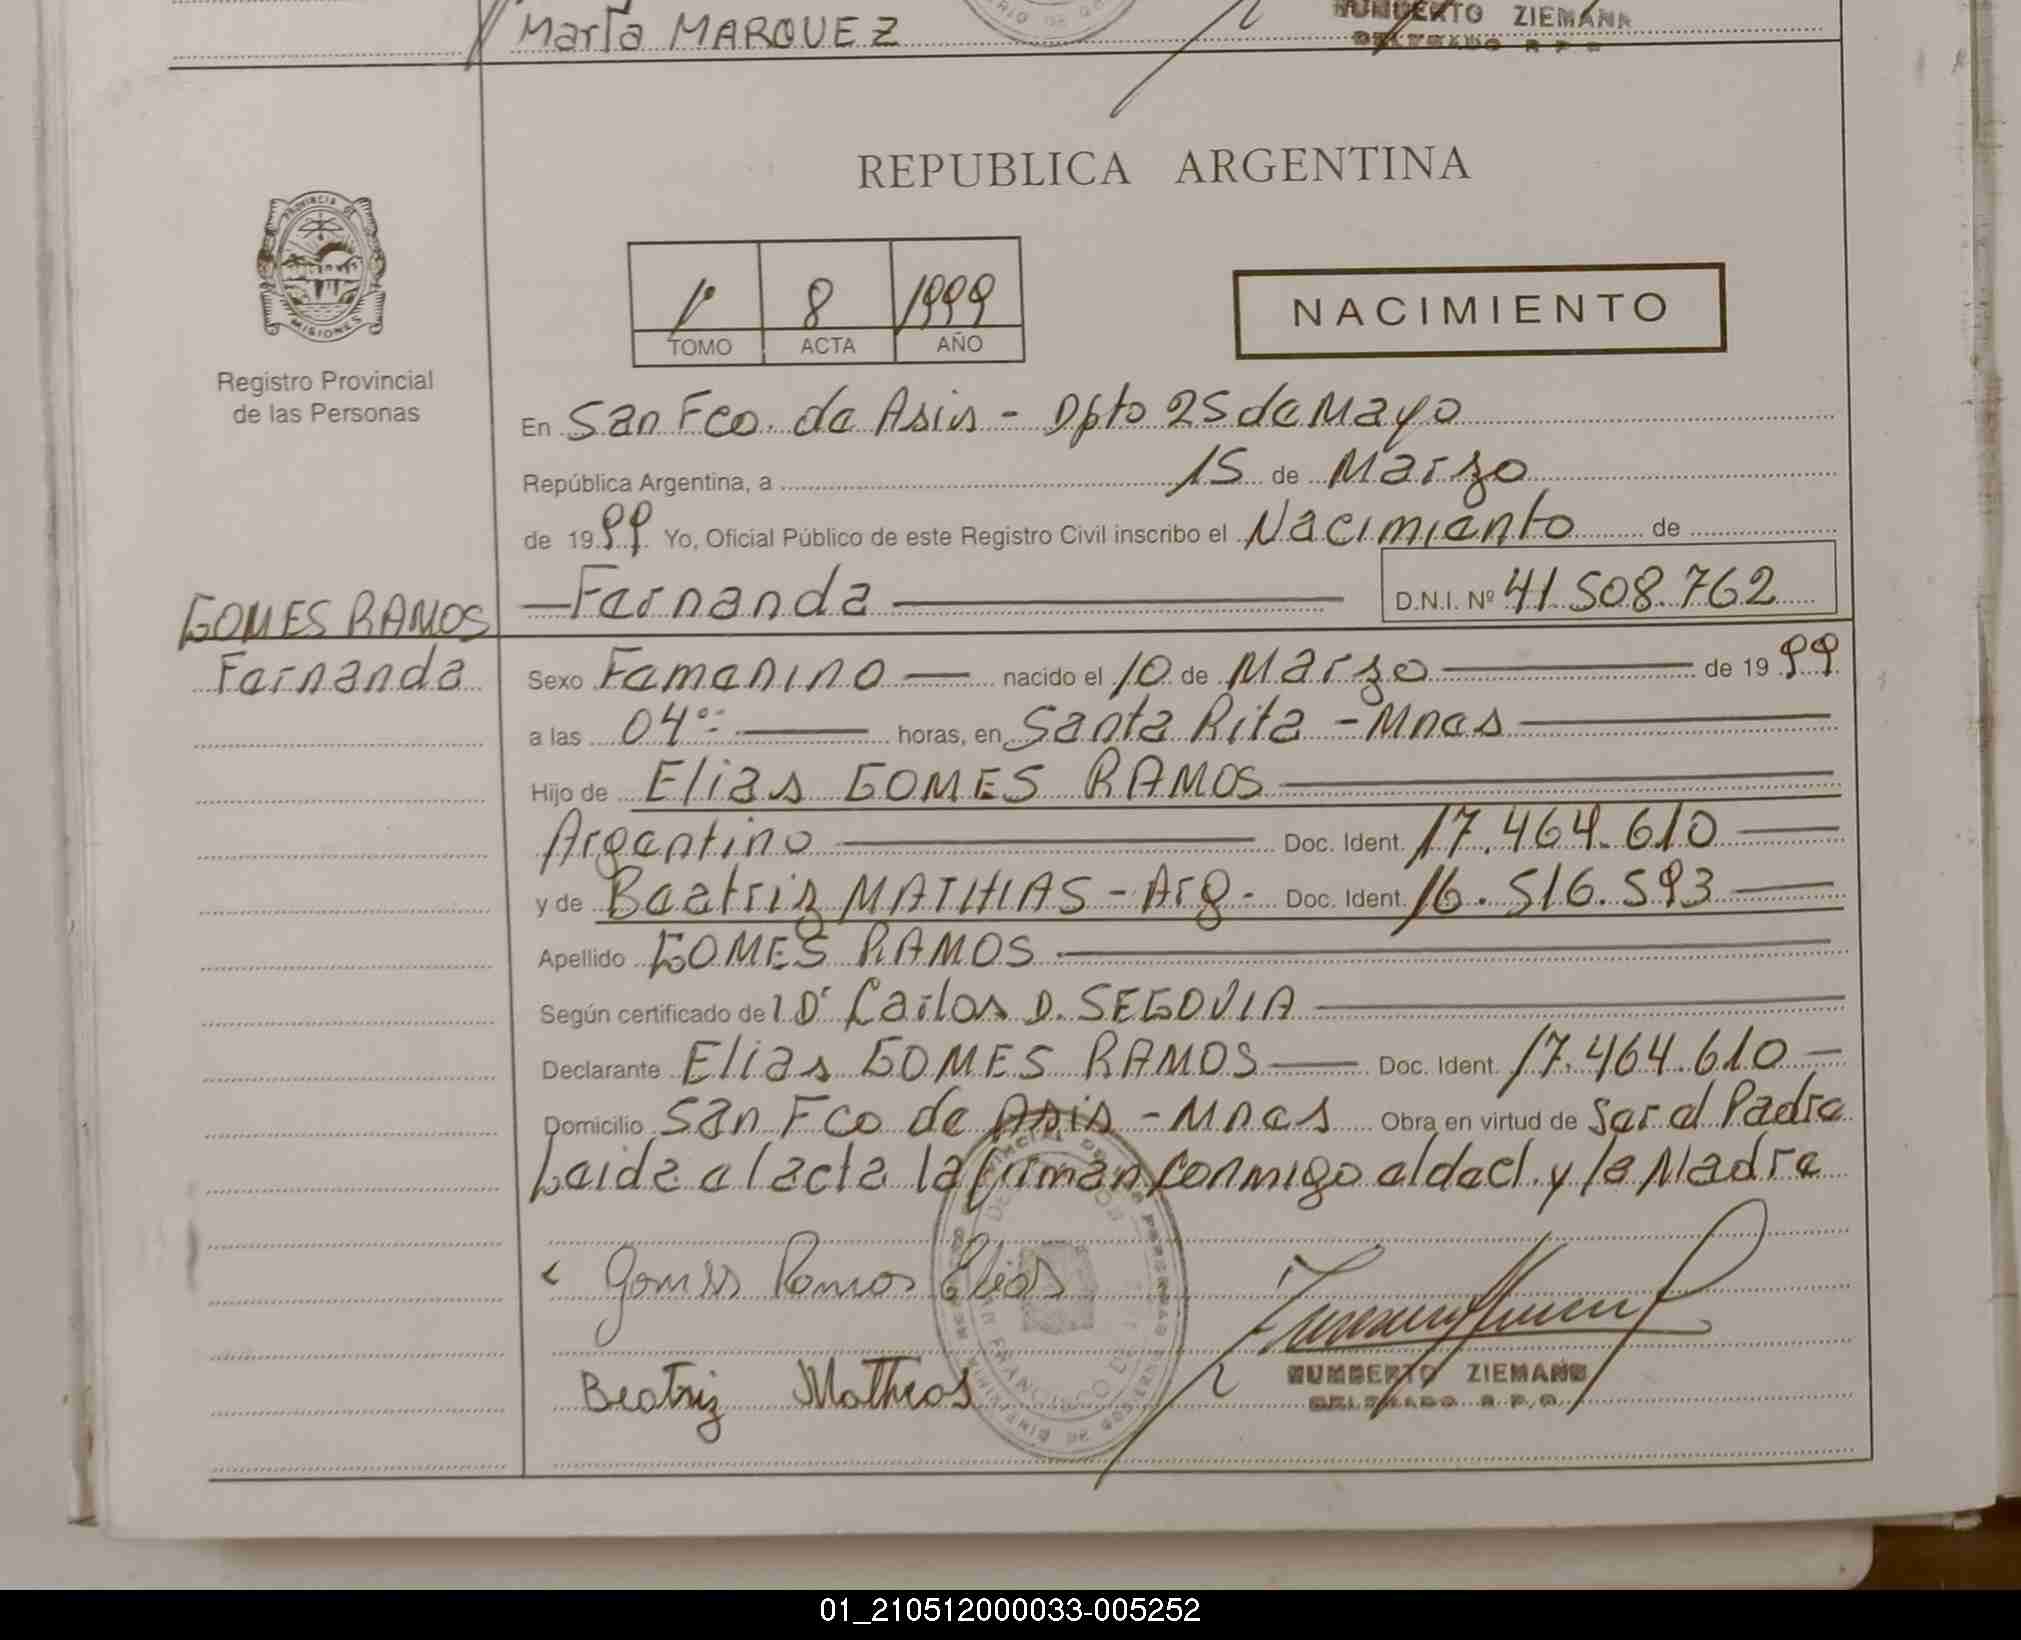 María MARQUEZ
HUMBERTO ZIEMANN
DELEGADO R P
REPUBLICA ARGENTINA
PROVINCIA DE
MISIONES
1º 8 1999
TOMO ACTA AÑO
NACIMIENTO
Registro Provincial
de las Personas
En San Fco. de Asis - Dpto 25 de Mayo
República Argentina, a 15 de Marzo
de 1999 Yo, Oficial Público de este Registro Civil inscribo el Nacimiento de
Fernanda D.N.I. Nº 41.508.762
GOMES RAMOS
Fernanda
Sexo Femenino nacido el 10 de Marzo de 1999
a las 04 horas, en Santa Rita - Mnes
Hijo de Elias GOMES RAMOS
Argentino Doc. Ident. 17.464.610
y de Beatriz MATHIAS - Arg - Doc. Ident. 16.516.593
Apellido GOMES RAMOS
Según certificado de Dr Carlos D. SEGOVIA
Declarante Elias GOMES RAMOS Doc. Ident. 17.464.610
Domicilio San Fco de Asis - Mnes Obra en virtud de Ser el Padre
Leida el acta la firman conmigo el decl. y la Madre
Gomes Ramos Elias
Beatriz Mathias
HUMBERTO ZIEMANN
DELEGADO R.P.
01_210512000033-005252